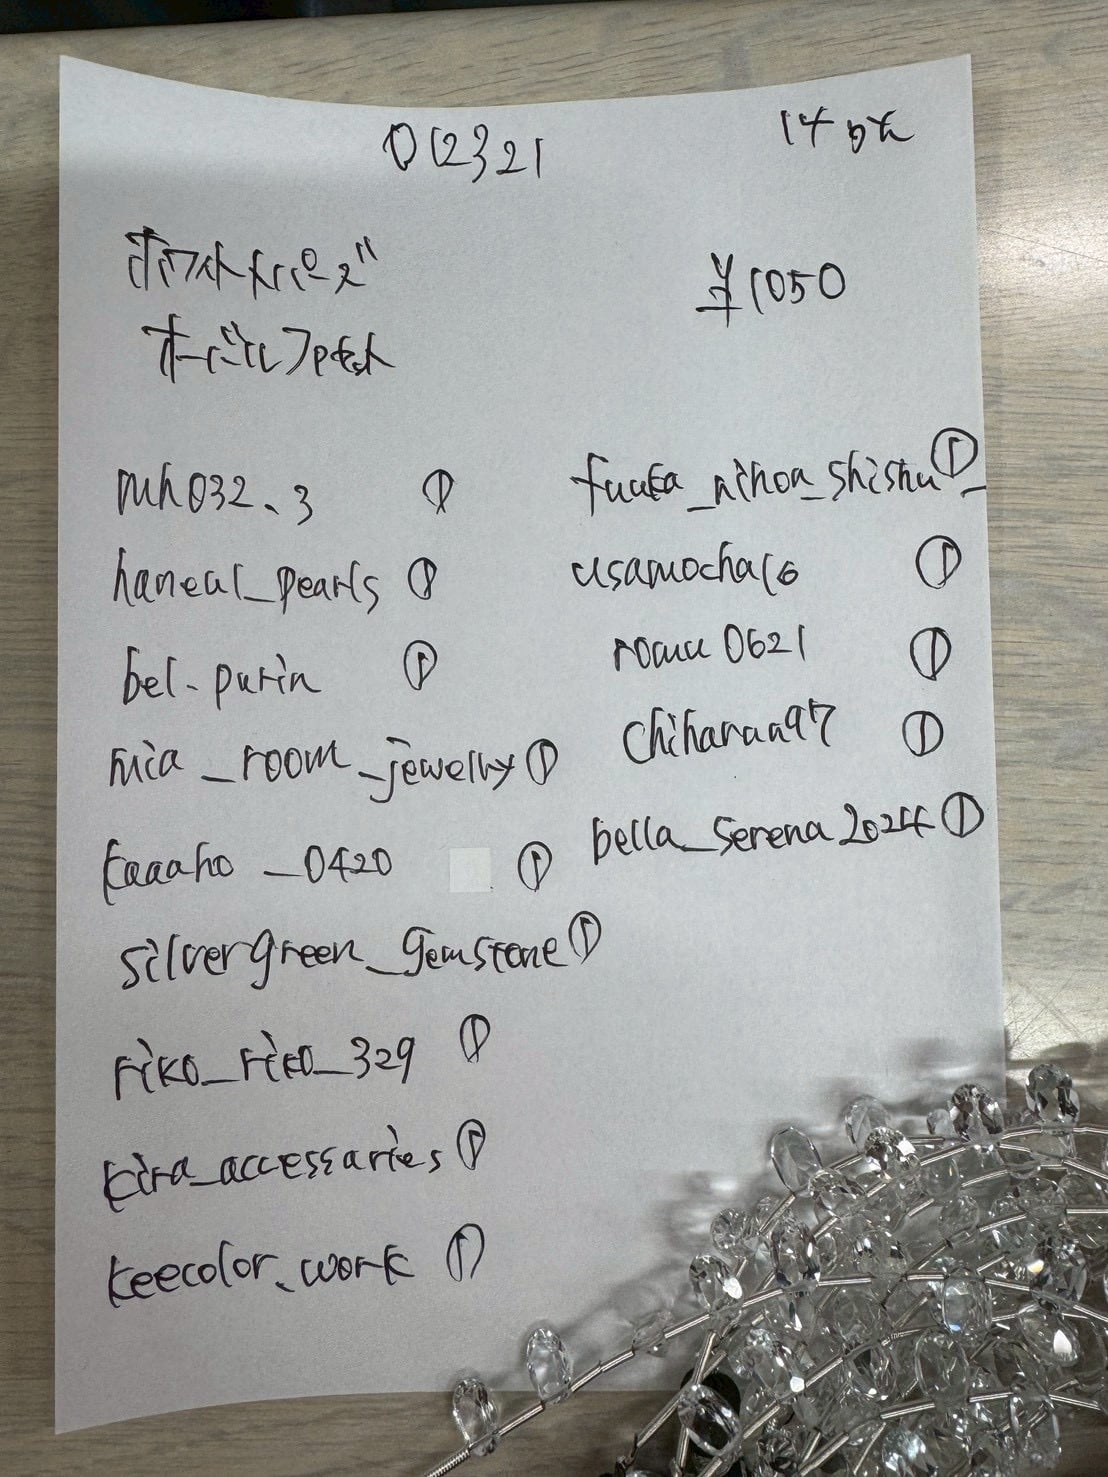 012321
14pk
ホワイトトパーズ
¥1050
オーバルファセット
mh032.3 ①
haneul_pearls ①
bel.purin ①
mia_room_jewelry ①
kaaaho_0420 ①
silvergreen_gemstone ①
riko_riko_329 ①
kira_accessaries ①
keecolor.work ①
fuuka_nihon_shishu_ ①
usamocha16 ①
romu0621 ①
chiharun97 ①
bella_serena2024 ①